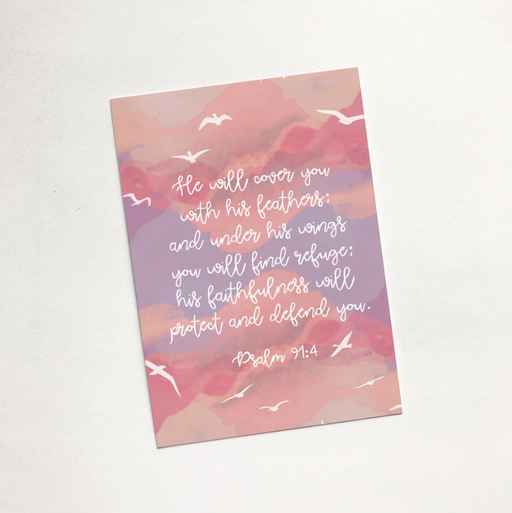 He will cover you
with his feathers;
and under his wings
you will find refuge;
his faithfulness will
protect and defend you.
Psalm 91:4